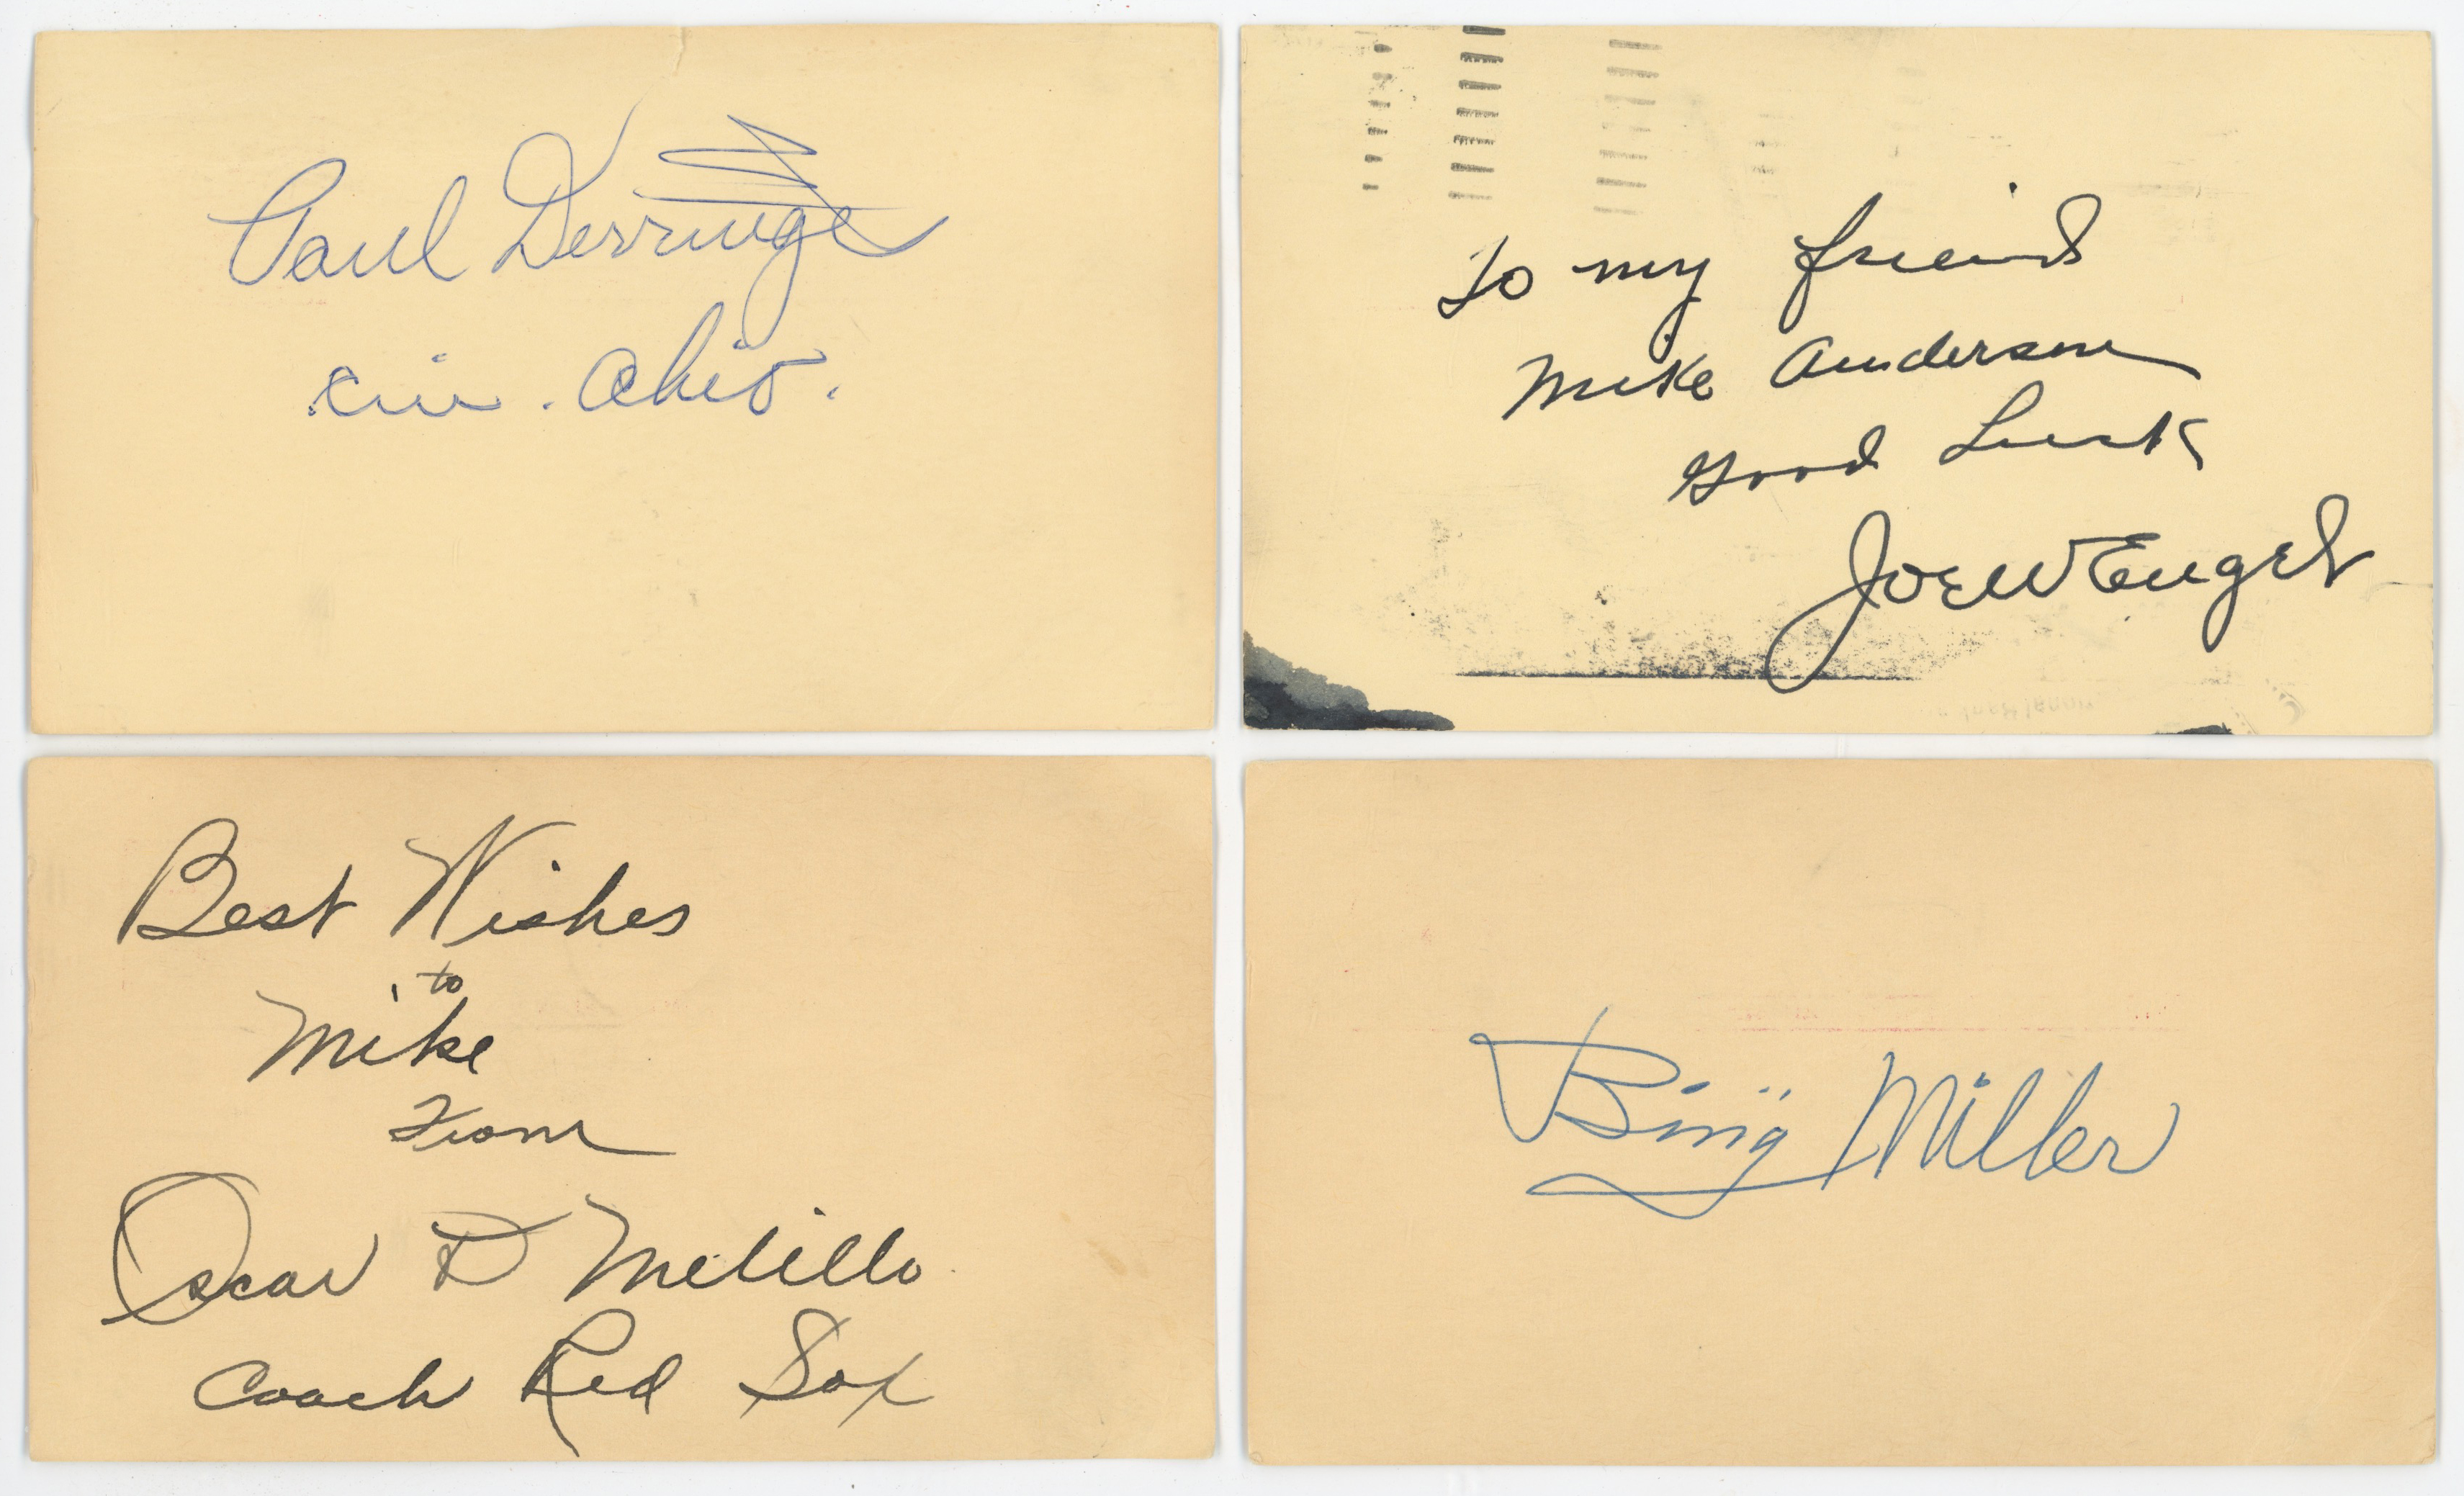 Paul Derringer
Cin. Ohio.
To my friend
Mike Anderson
Good Luck
Joe W Engel
Best Wishes
to
Mike
From
Oscar D Melillo
Coach Red Sox
Bing Miller